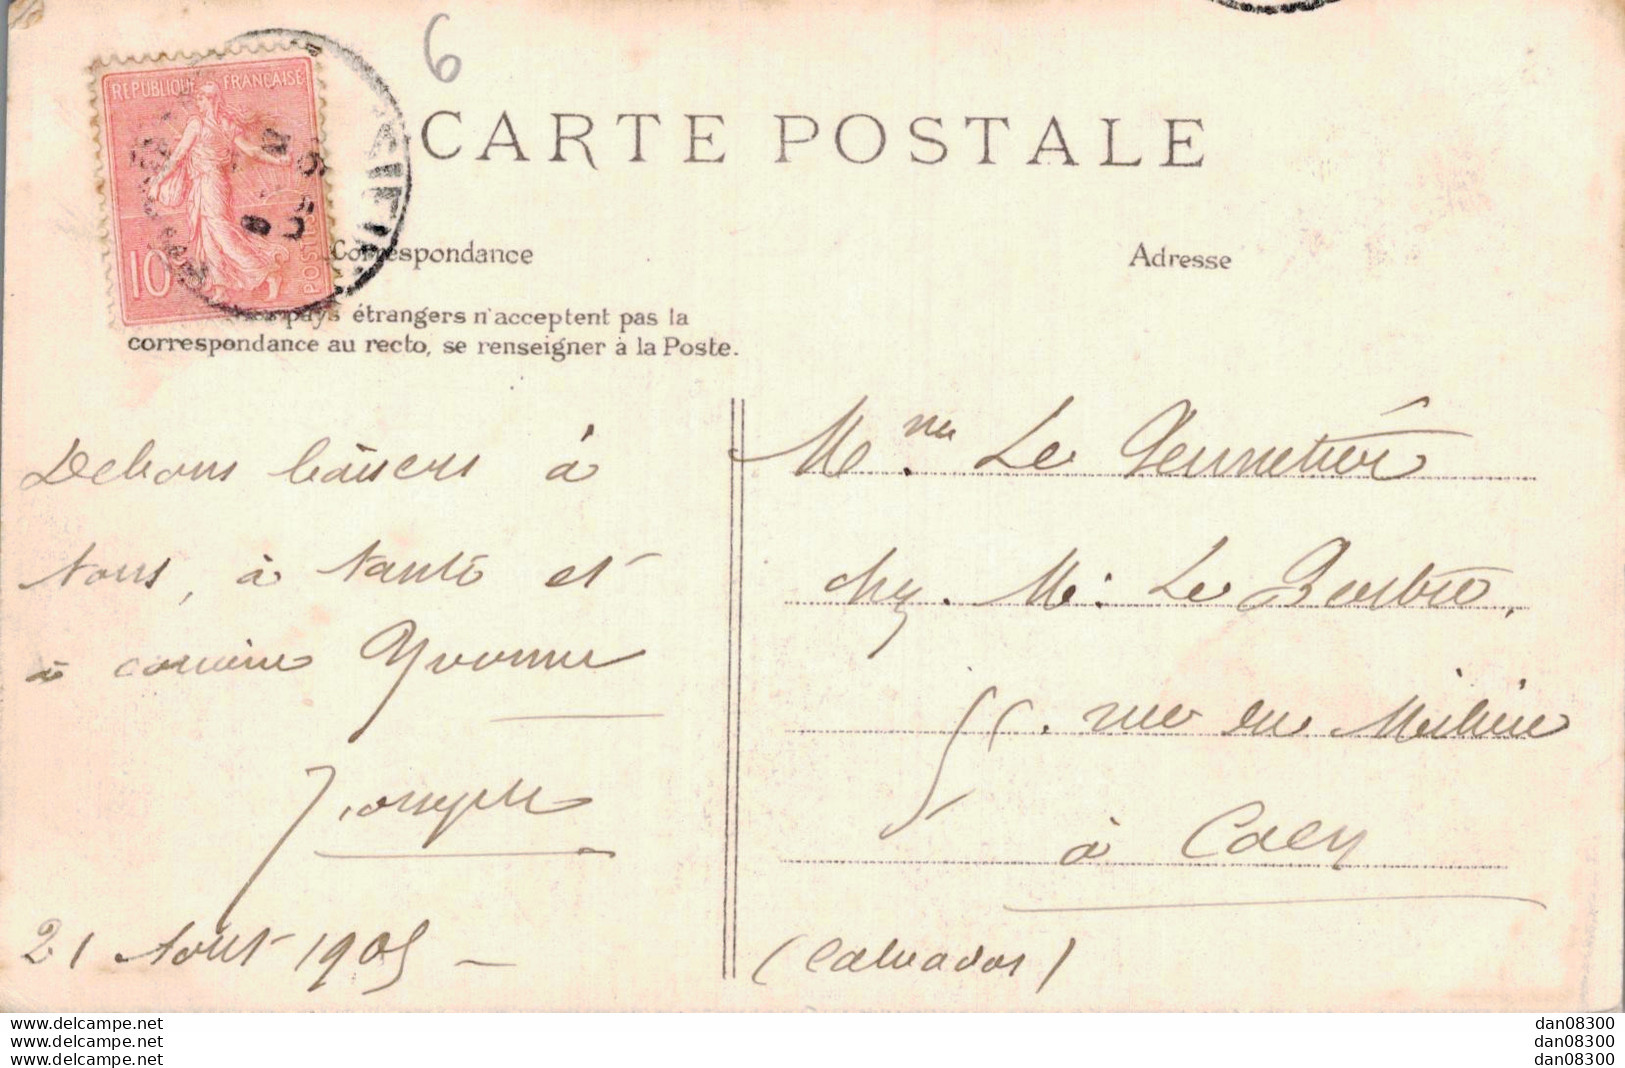 6
REPUBLIQUE FRANÇAISE
10
POSTES
CARTE POSTALE
Correspondance
Adresse
pays étrangers n'acceptent pas la
correspondance au recto, se renseigner à la Poste.
De bons baisers à
tous, à tante et
à cousine Yvonne
Joseph
21 Août 1905 _
Mme. Le
chez M. Le
55. rue du
à Caen
(Calvados)
www.delcampe.net
www.delcampe.net
www.delcampe.net
dan08300
dan08300
dan08300